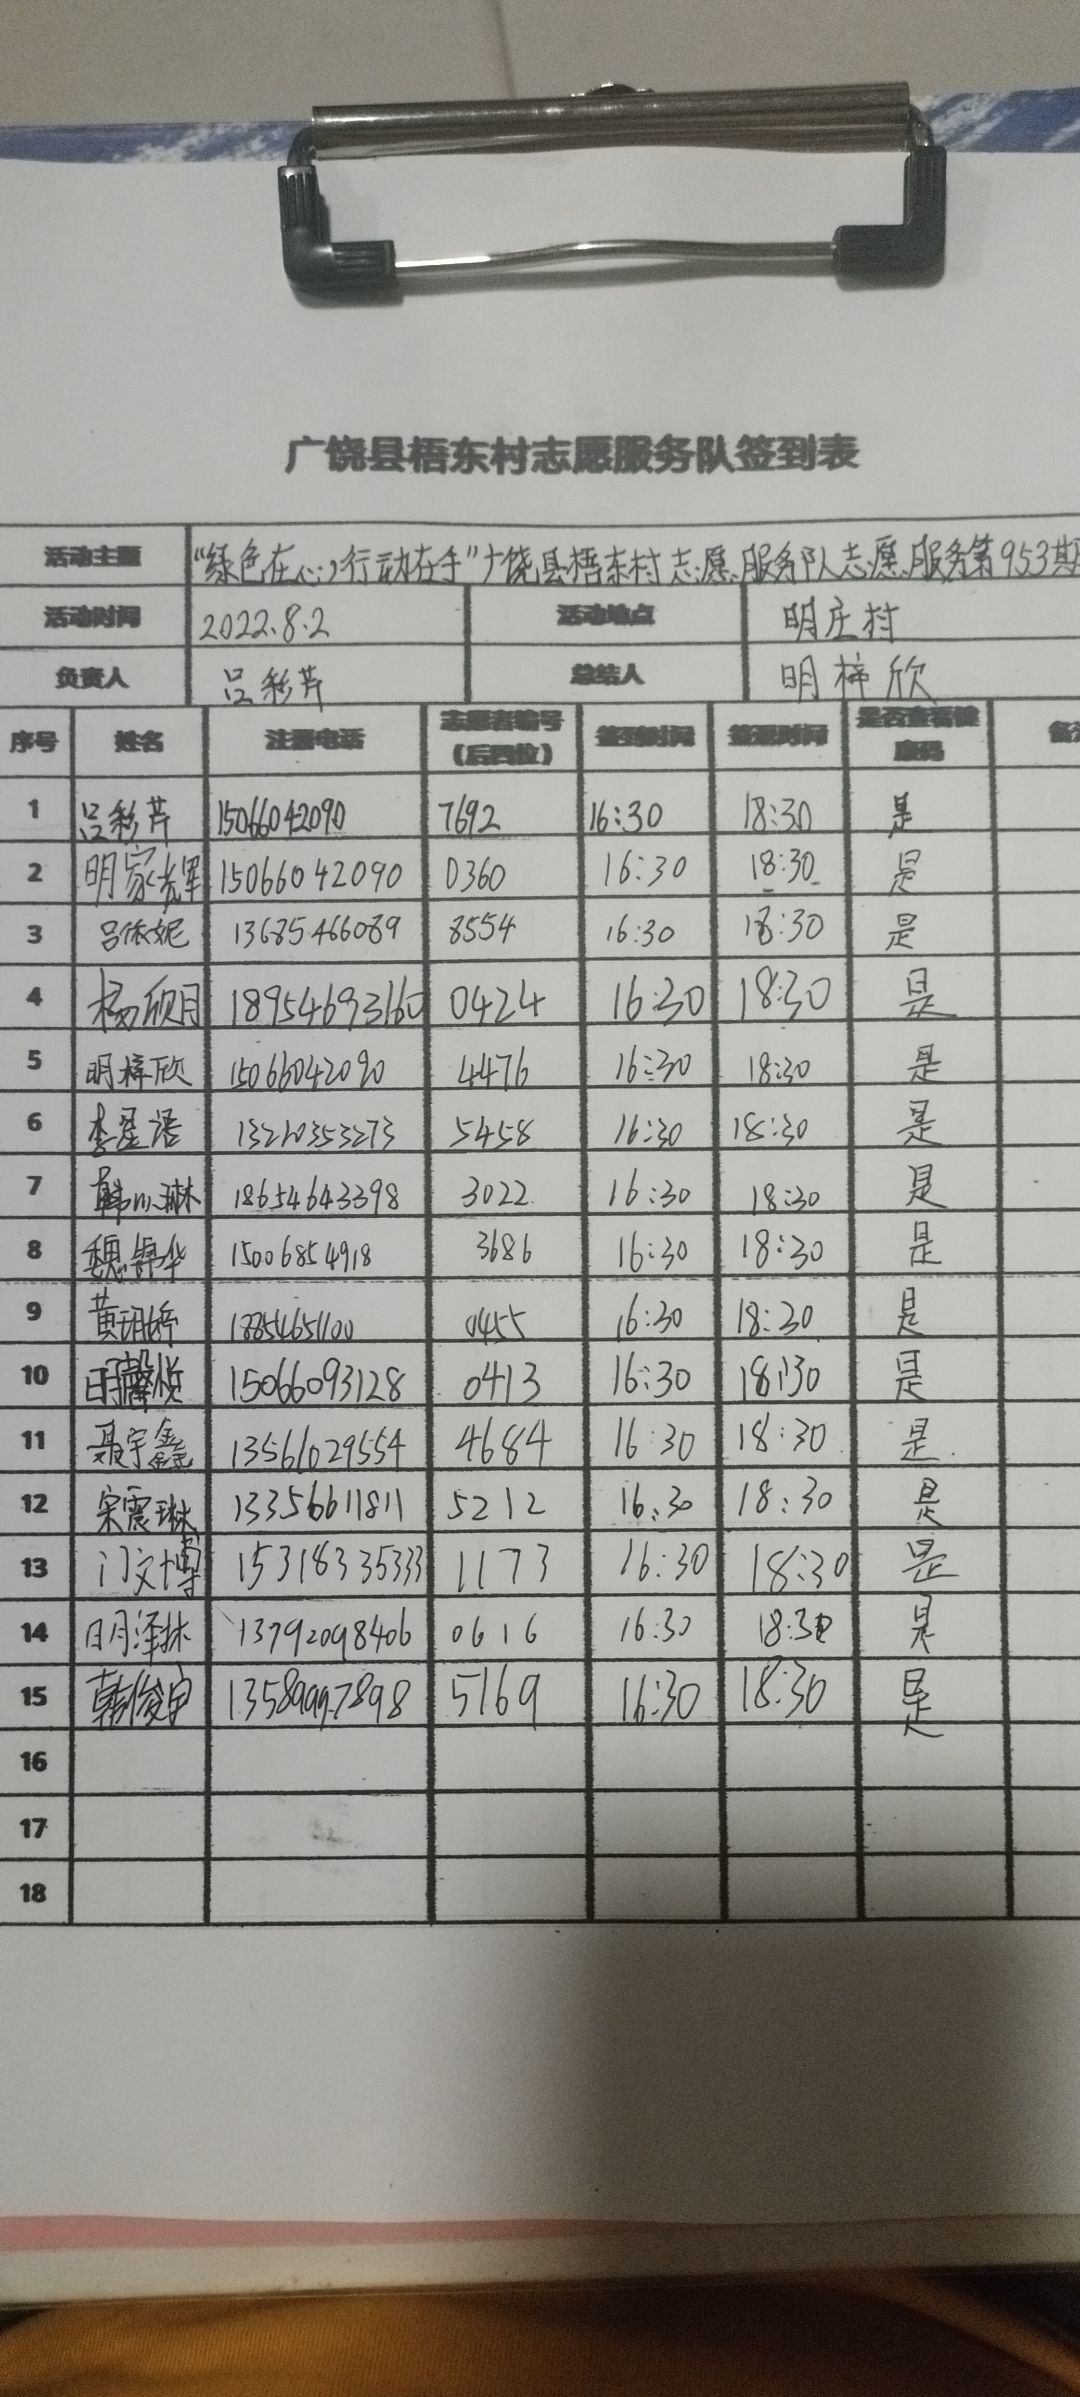 广饶县梧东村志愿服务队签到表
活动主题 “绿色在心,行动在手”广饶县梧东村志愿服务队志愿服务第953期
活动时间 2022.8.2 活动地点 明庄村
负责人 吕彩芹 总结人 明梓欣
序号 姓名 注册电话 志愿者编号（后四位） 签到时间 签退时间 是否查看健康码
1 吕彩芹 15066042090 7692 16:30 18:30 是
2 明家辉 15066042090 0360 16:30 18:30 是
3 吕依妮 13685466089 8554 16:30 18:30 是
4 杨欣月 18954693160 0424 16:30 18:30 是
5 明梓欣 15066042090 4476 16:30 18:30 是
6 李星语 13210353273 5458 16:30 18:30 是
7 韩 琳 18654643398 3022 16:30 18:30 是
8 魏锦华 15006854918 3686 16:30 18:30 是
9 黄玥婷 18854651100 0455 16:30 18:30 是
10 明馨悦 15066093128 0413 16:30 18:30 是
11 聂宇鑫 13561029554 4684 16:30 18:30 是
12 宋震琳 13356611811 5212 16:30 18:30 是
13 门文博 15318335333 1173 16:30 18:30 是
14 明泽林 13792098406 0616 16:30 18:30 是
15 韩俊宇 13589997898 5169 16:30 18:30 是
16
17
18